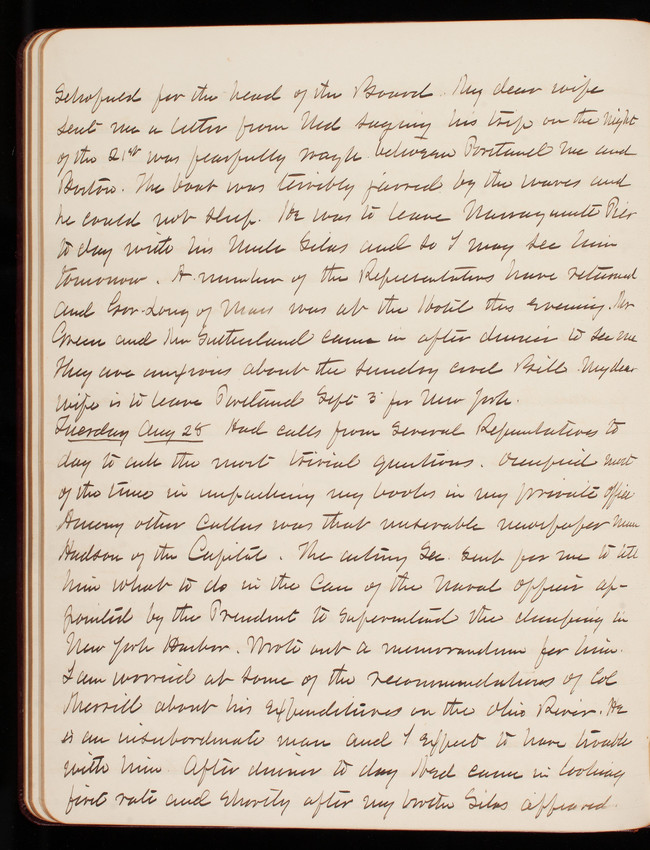 Schofield for the head of the Board. My dear wife
sent me a letter from Ned saying his trip on the night
of the 21st was fearfully rough between Portland Me and
Boston. The boat was terribly jarred by the waves and
he could not sleep. He was to leave Narragansett Pier
to day with his Uncle Silas and so I may see him
tomorrow. A number of the Representatives have returned
and Gov. Long of Mass was at the Hotel this evening. Mr
Green and Mr Sutherland came in after dinner to see me
They are anxious about the sundry civil Bill. My dear
wife is to leave Portland Sept 3 for New York.
Tuesday Aug 28 Had calls from several Representatives to
day to ask the most trivial questions. Occupied most
of the time in unpacking my books in my private office
Among other callers was that miserable newspaper man
Hudson of the Capital. The acting Sec. sent for me to tell
him what to do in the case of the naval officer ap-
pointed by the President to superintend the dumping in
New York Harbor. Wrote out a memorandum for him.
I am worried at some of the recommendations of Col
Merrill about his expenditures on the Ohio River. He
is an insubordinate man and I expect to have trouble
with him. After dinner to day Ned came in looking
first rate and shortly after my brother Silas appeared.